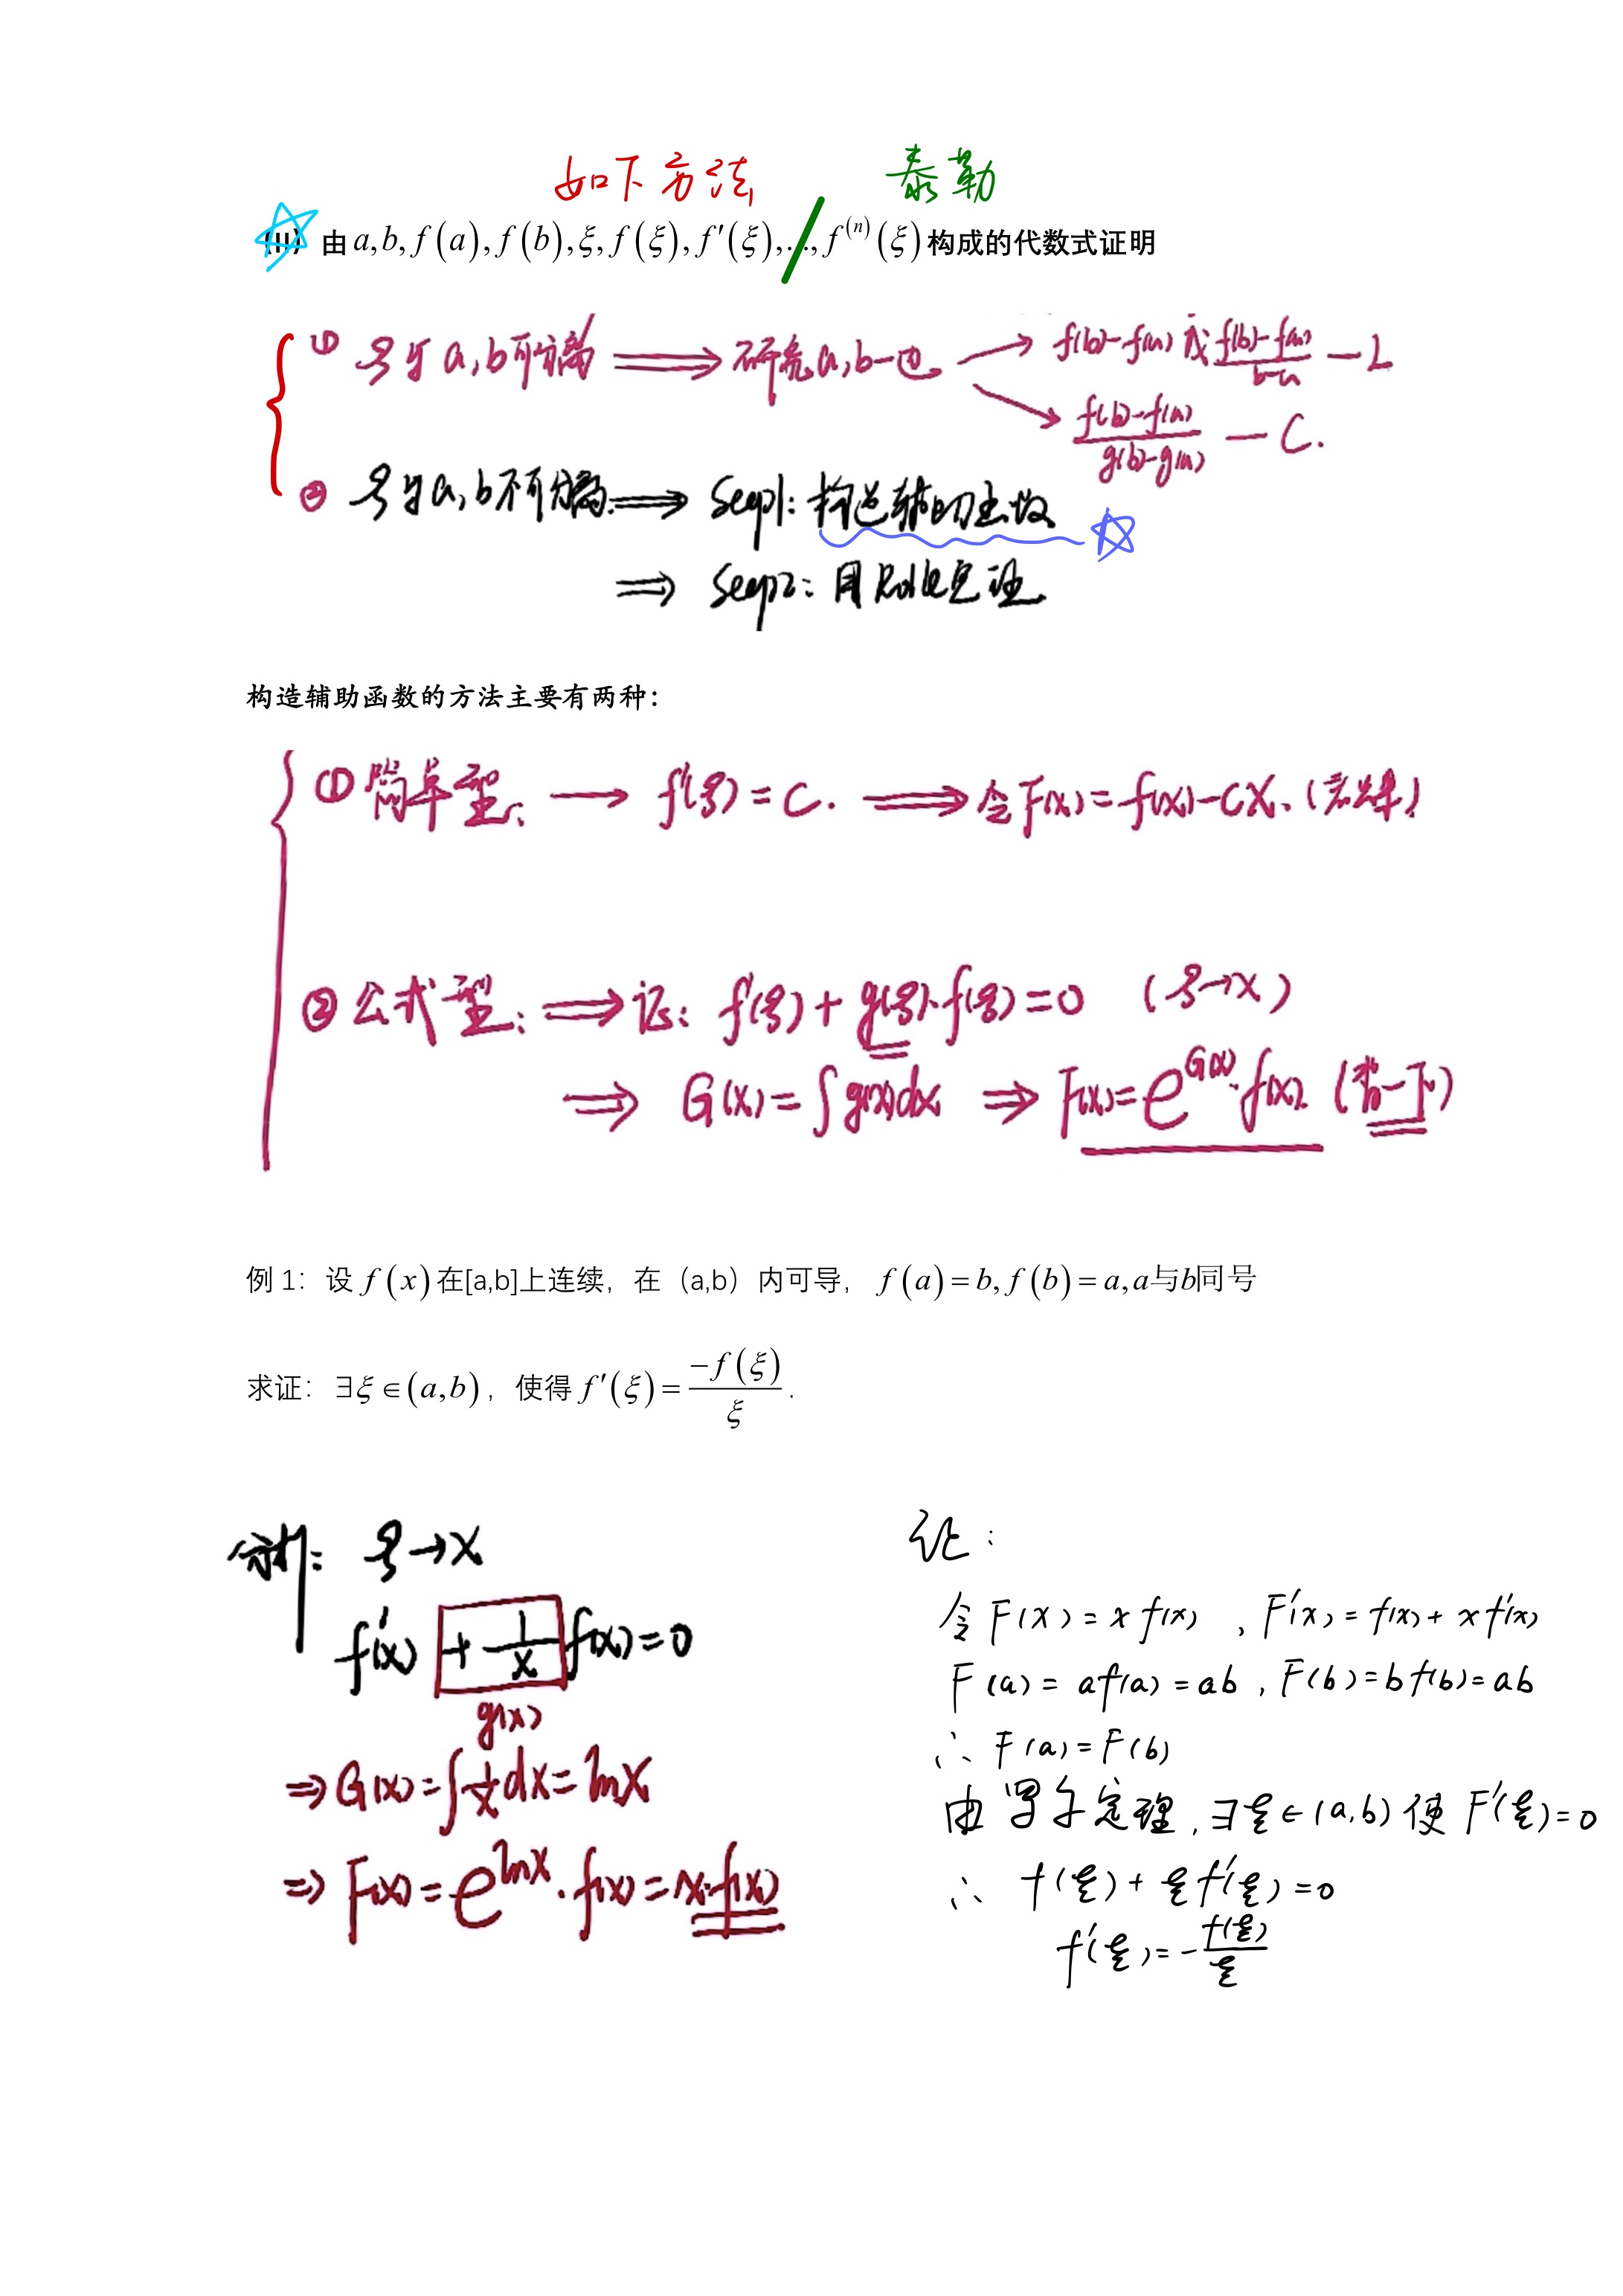 如下方法 泰勒
(II) 由 a,b,f(a),f(b),ξ,f(ξ),f′(ξ),...,f⁽ⁿ⁾(ξ) 构成的代数式证明
① ξ与a,b可分离 ⟹ 研究a,b一边 → f(b)-f(a) 或 \frac{f(b)-f(a)}{b-a} — L
→ \frac{f(b)-f(a)}{g(b)-g(a)} — C.
② ξ与a,b不可分离. ⟹ Seep1: 构造辅助函数
⟹ Seep2: 用Rolle定理
构造辅助函数的方法主要有两种：
① 简单型: → f′(ξ) = C. ⟹ 令F(x) = f(x) - CX.
② 公式型: ⟹ 证: f′(ξ) + g(ξ)·f(ξ) = 0 (ξ→X)
⟹ G(x) = ∫g(x)dx ⟹ F(x) = e^{G(x)}·f(x).
例 1：设 f(x) 在[a,b]上连续，在（a,b）内可导， f(a) = b, f(b) = a, a与b同号
求证：∃ξ∈(a,b)，使得 f′(ξ) = \frac{-f(ξ)}{ξ}.
分析: ξ→X
f′(x) + \frac{1}{x} f(x) = 0
g(x)
⇒ G(x) = ∫\frac{1}{x}dx = lnx
⇒ F(x) = e^{lnx}·f(x) = x·f(x)
证:
令 F(x) = x f(x) , F′(x) = f(x) + x f′(x)
F(a) = a f(a) = ab , F(b) = b f(b) = ab
∴ F(a) = F(b)
由罗尔定理, ∃ξ∈(a,b) 使 F′(ξ) = 0
∴ f(ξ) + ξ f′(ξ) = 0
f′(ξ) = -\frac{f(ξ)}{ξ}